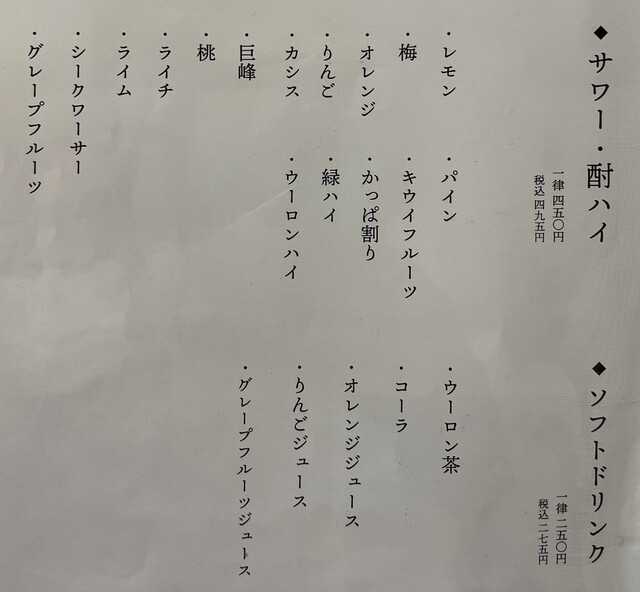 ◆サワー・酎ハイ
一律 四五〇円
税込 四九五円
・レモン
・梅
・オレンジ
・りんご
・カシス
・巨峰
・桃
・ライチ
・ライム
・シークワーサー
・グレープフルーツ
・パイン
・キウイフルーツ
・かっぱ割り
・緑ハイ
・ウーロンハイ
◆ソフトドリンク
一律 二五〇円
税込 二七五円
・ウーロン茶
・コーラ
・オレンジジュース
・りんごジュース
・グレープフルーツジュース